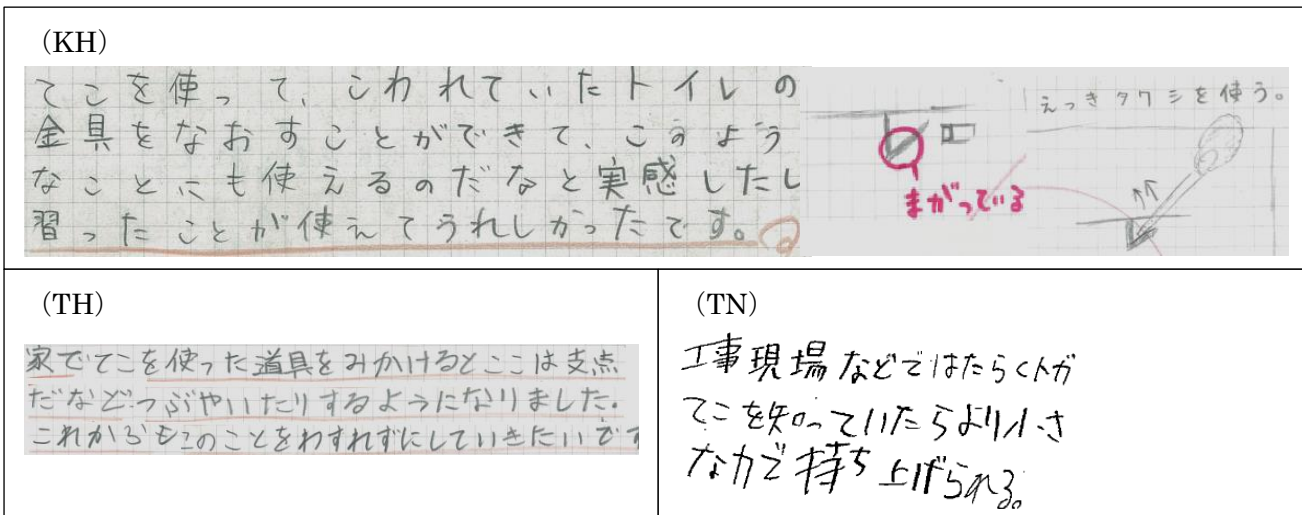 （KH）
てこを使って、こわれていたトイレの
金具をなおすことができて、このよう
なことにも使えるのだなと実感したし
習ったことが使えてうれしかったです。
えっきタワシを使う。
まがっている
（TH）
家でてこを使った道具をみかけるとここは支点
だなどつぶやいたりするようになりました。
これからもこのことをわすれずにしていきたいです
（TN）
工事現場などではたらく人が
てこを知っていたらより小さ
な力で持ち上げられる。